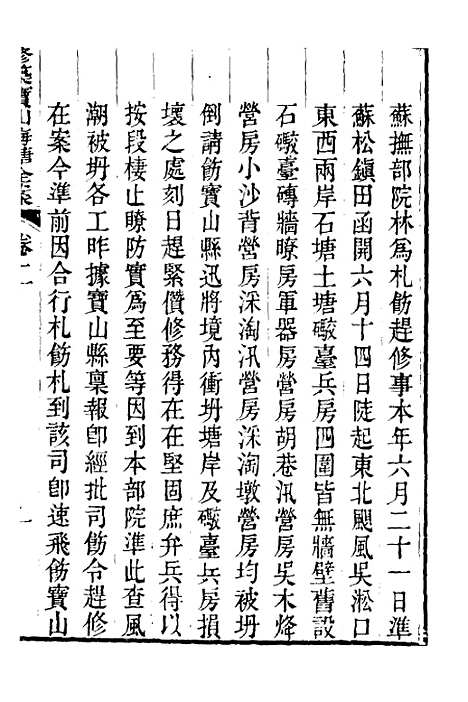 蘇撫部院林爲札飭趕修事本年六月二十一日準
蘇松鎭田函開六月十四日陡起東北颶風吳淞口
東西兩岸石塘土塘礮臺兵房四圍皆無牆壁舊設
石礮臺磚牆暸房軍器房營房胡巷汛營房吳木烽
營房小沙背營房深淘汛營房深淘墩營房均被坍
倒請飭寶山縣迅將境內衝坍塘岸及礮臺兵房損
壞之處刻日趕緊儹修務得在在堅固庶弁兵得以
按段棲止暸防實爲至要等因到本部院準此查風
潮被坍各工昨據寶山縣稟報卽經批司飭令趕修
在案今準前因合行札飭札到該司卽速飛飭寶山
修築寶山海塘全案
卷二
一